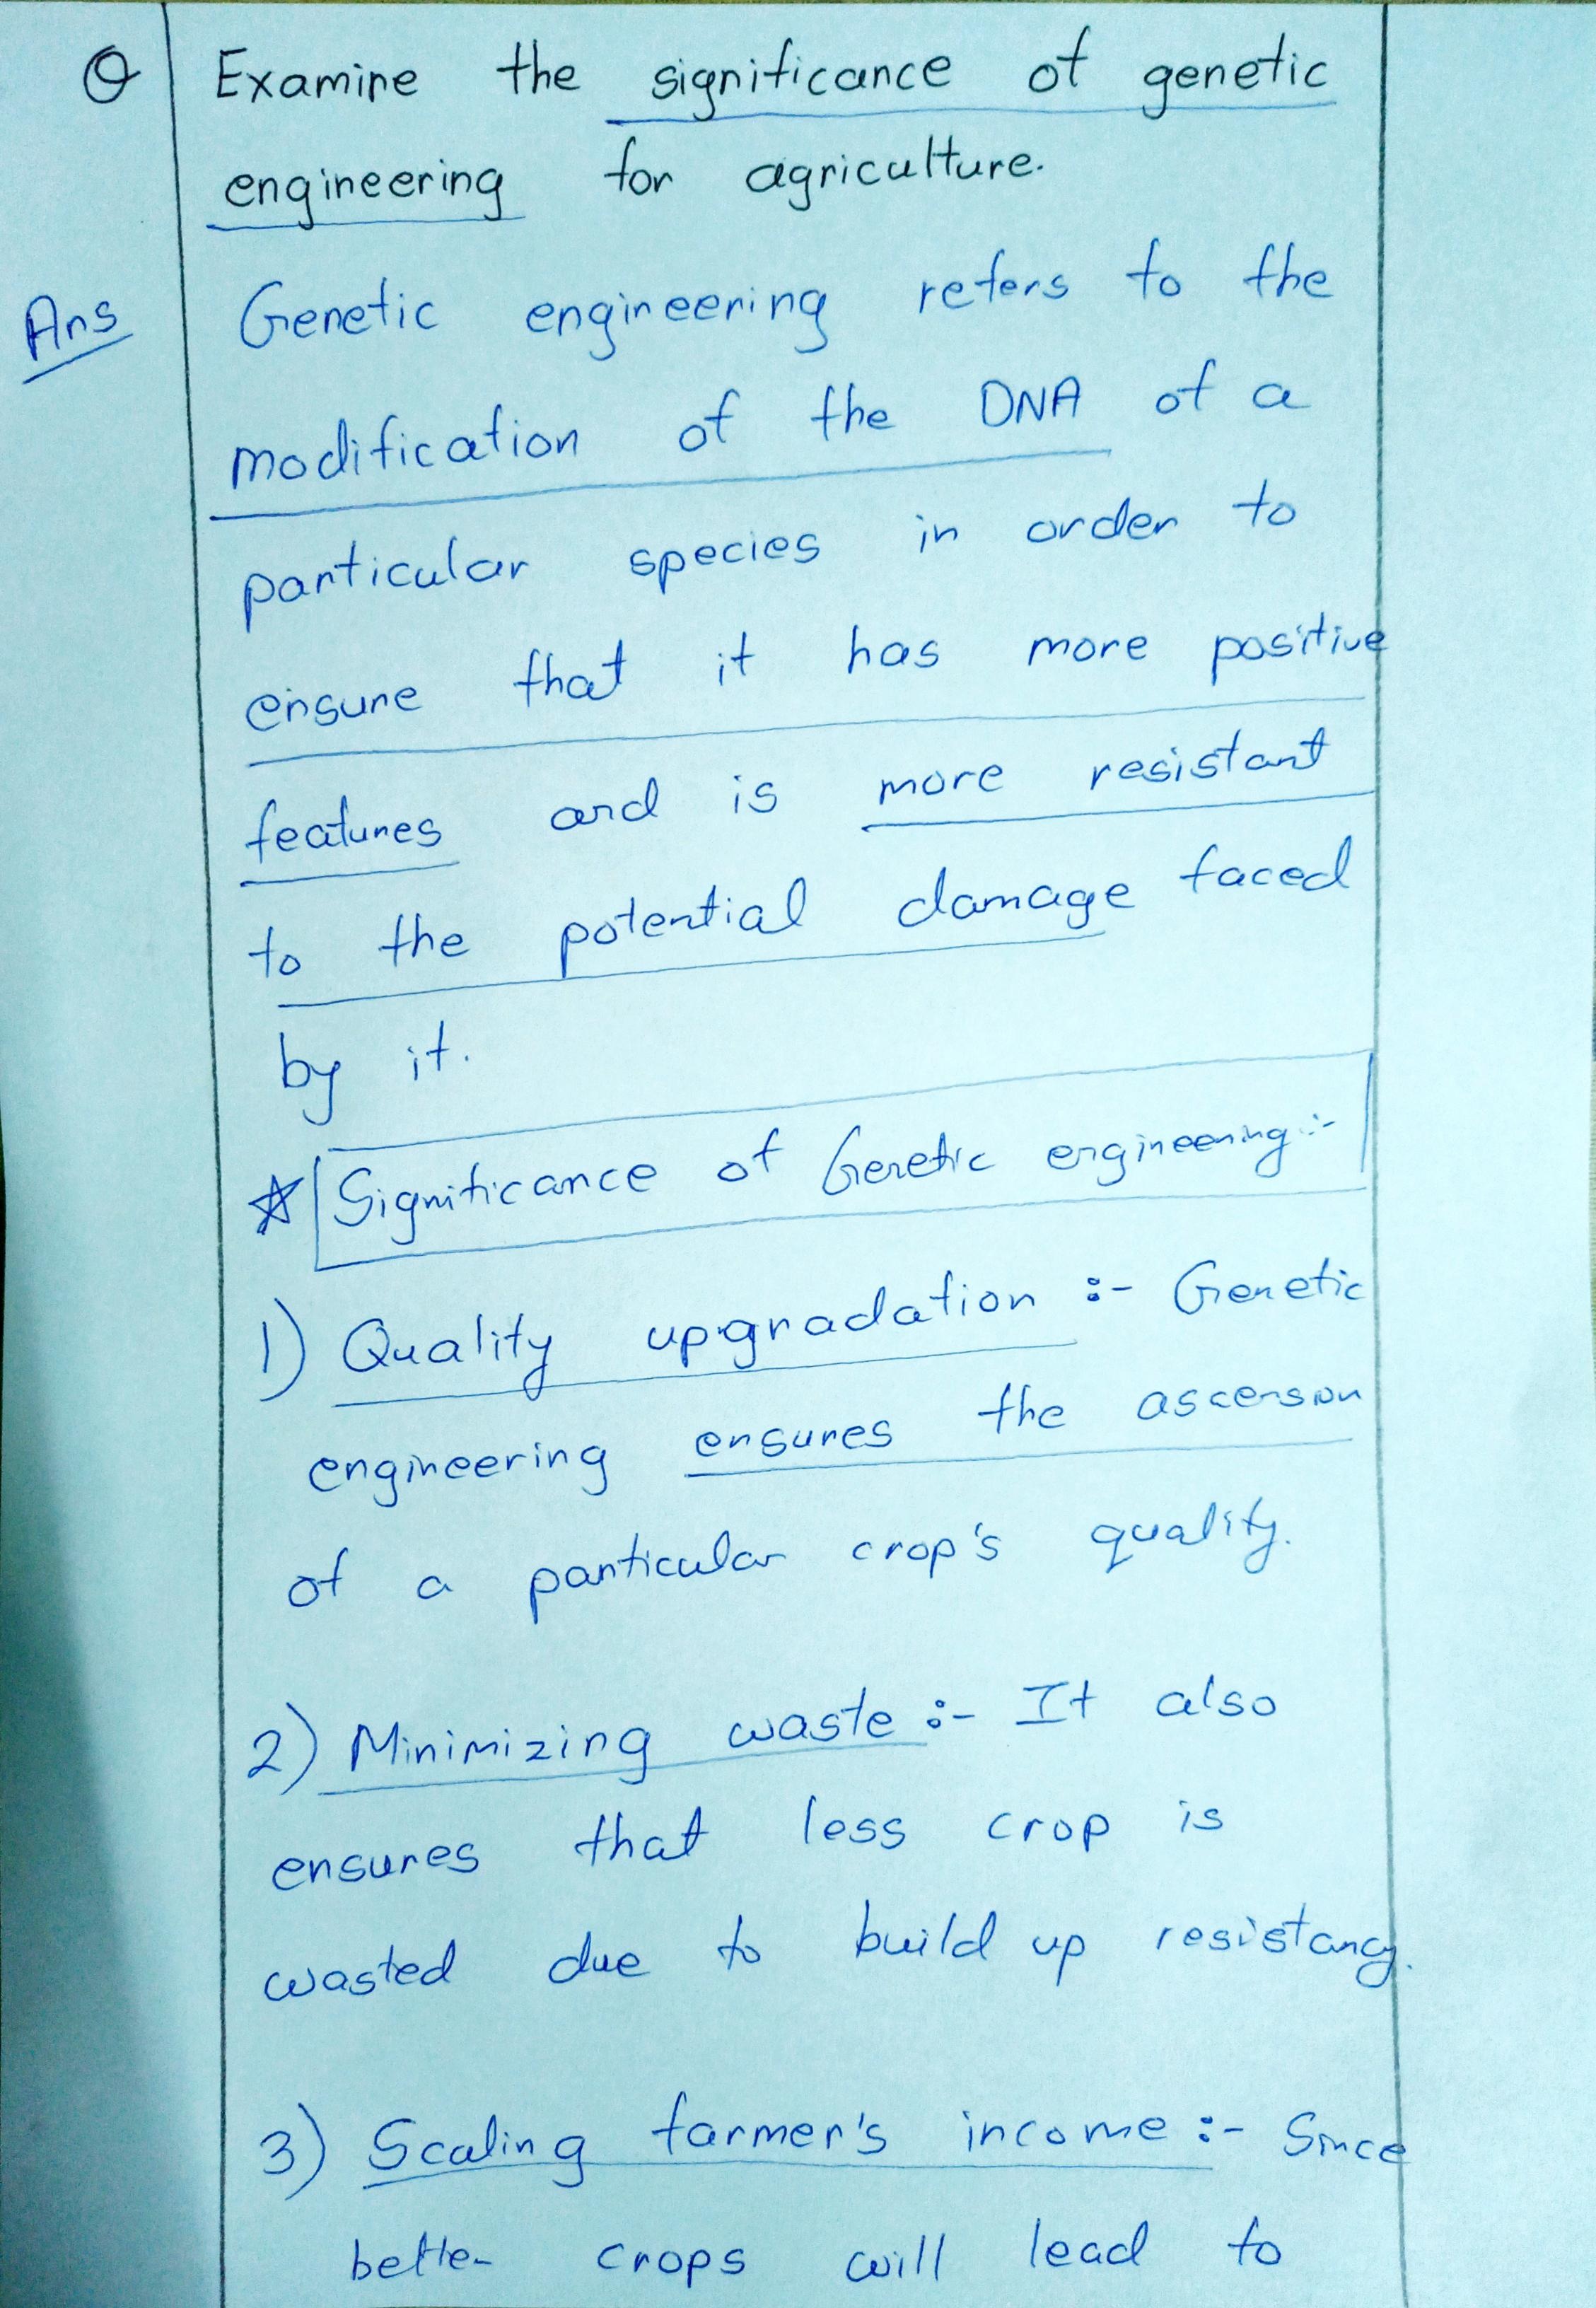 Q Examine the significance of genetic
engineering for agriculture.
Ans Genetic engineering refers to the
modification of the DNA of a
particular species in order to
ensure that it has more positive
features and is more resistant
to the potential damage faced
by it.
☆ Significance of Genetic engineering:-
1) Quality upgradation :- Genetic
engineering ensures the ascension
of a particular crop's quality.
2) Minimizing waste :- It also
ensures that less crop is
wasted due to build up resistancy.
3) Scaling farmer's income :- Since
better crops will lead to